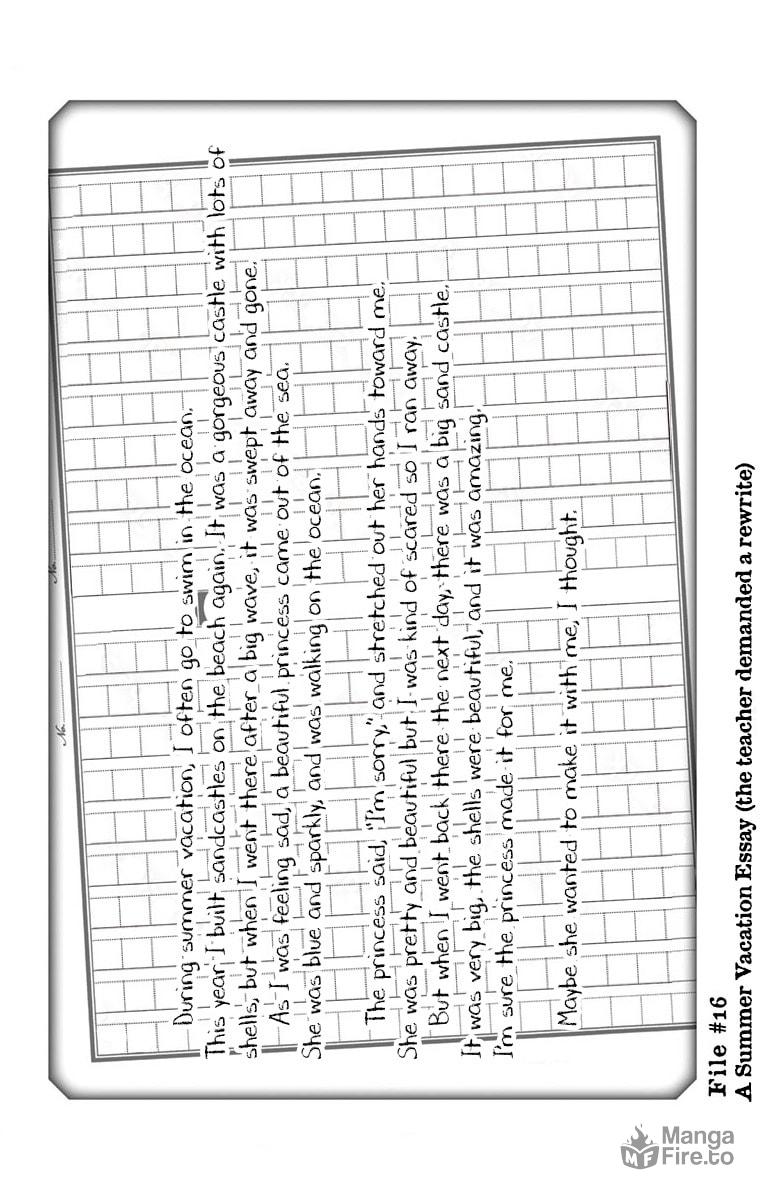 During summer vacation, I often go to swim in the ocean.
This year I built sandcastles on the beach again. It was a gorgeous castle with lots of
shells, but when I went there after a big wave, it was swept away and gone.
As I was feeling sad, a beautiful princess came out of the sea.
She was blue and sparkly, and was walking on the ocean.
The princess said, "I'm sorry," and stretched out her hands toward me.
She was pretty and beautiful but I was kind of scared so I ran away.
But when I went back there the next day, there was a big sand castle.
It was very big, the shells were beautiful, and it was amazing.
I'm sure the princess made it for me.
Maybe she wanted to make it with me, I thought.
No.
No.
File #16
A Summer Vacation Essay (the teacher demanded a rewrite)
MF
Manga
Fire.to